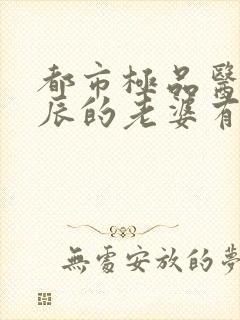 都市極品醫
辰的老婆有
無處安放的夢